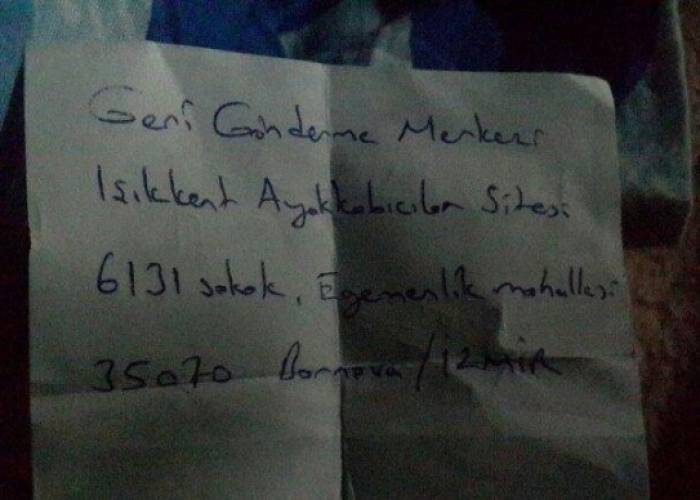 Geri Gönderme Merkezi
Işıkkent Ayakkabıcılar Sitesi
6131 sokak, Egemenlik mahallesi
35070 Bornova/İZMİR